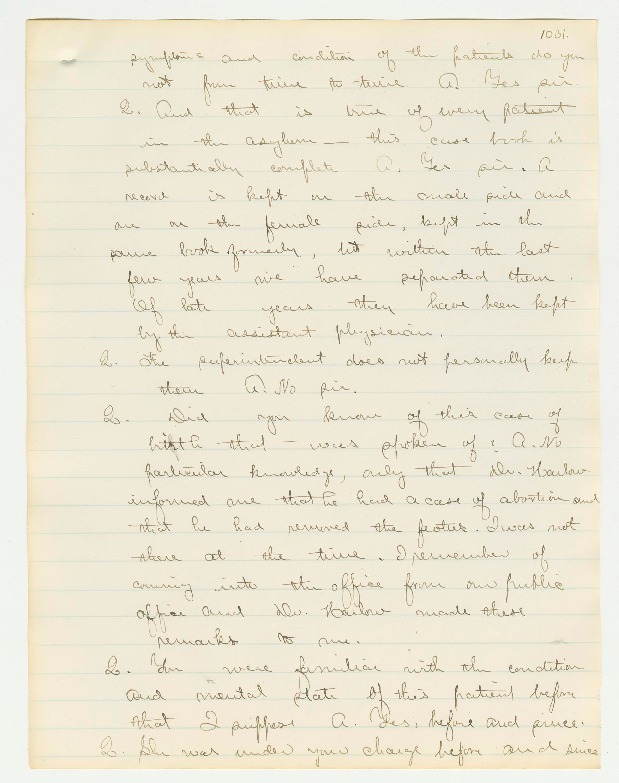 1031.
symptoms and condition of the patients do you
not from time to time A. Yes sir.
Q. And that is true of every patient
in the asylum — this case book is
substantially complete A. Yes sir. A
record is kept on the male side and
one on the female side, kept in the
same book formerly, but within the last
few years we have separated them.
Of late years they have been kept
by the assistant physician.
Q. The superintendent does not personally keep
them A. No sir.
Q. Did you know of this case of
birth that – was spoken of? A. No
particular knowledge, only that Dr. Harlow
informed me that he had a case of abortion and
that he had removed the foetus. I was not
there at the time. I remember of
coming into the office from our public
office and Dr. Harlow made these
remarks to me.
Q. You were familiar with the condition
and mental state of this patient before
that I suppose A. Yes, before and since.
Q. She was under your charge before and since